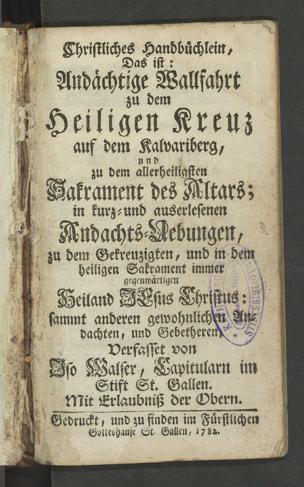 Christliches Handbüchlein,
Das ist:
Andächtige Wallfahrt
zu dem
Heiligen Kreuz
auf dem Kalvariberg,
und
zu dem allerheiligsten
Sakrament des Altars;
in kurz-und auserlesenen
Andachts-Uebungen,
zu dem Gekreuzigten, und in dem
heiligen Sakrament immer
gegenwärtigen
Heiland JEsus Christus:
sammt anderen gewohnlichen An-
dachten, und Gebetheren,
Verfasset von
Iso Walser, Capitularn im
Stift St. Gallen.
Mit Erlaubniß der Obern.
Gedruckt, und zu finden im Fürstlichen
Gotteshause St. Gallen, 1782.